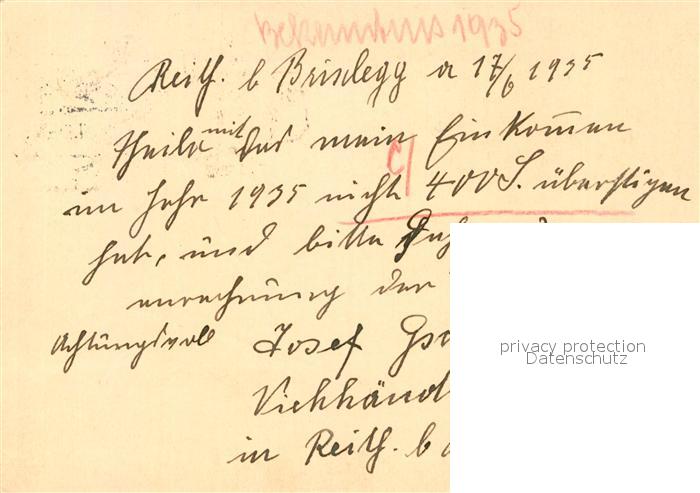 Bekenntnis 1935
Reith. b Brixlegg a 17/6 1935
Theile mit das mein Einkom̄en
im Jahr 1935 nicht 400 S. überstigen
hat, und bitte
anrechnung der
Achtungsvoll Josef Gsc
Viehhändl
in Reith. b
privacy protection
Datenschutz